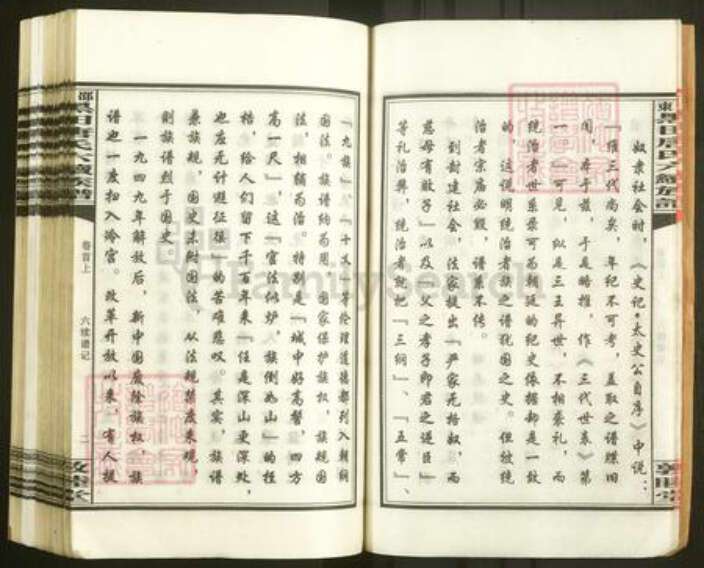 奴隶社会时，《史记·太史公自序》中说：
『维三代尚矣，年纪不可考，盖取之谱牒旧
闻，本于兹，于是略推，作《三代世表》第
一』。可见，纵是三王异世，不相袭礼，而
统治者世系录可为朝廷的纪史依据却是一致
的，这说明统治者族之谱犹国之史。但被统
治者宗庙必毁，谱系不传。
到封建社会，法家提出『严家无格奴，而
慈母有败子』以及『父之孝子即君之逆臣』
等礼治兴，统治者就把『三纲』、『五常』、
『九族』、『十义』等伦理道德都列入朝纲
国法。族谱纳为用，国家保护族权，族规国
法，相辅为治。特别是『城中好高髻，四方
高一尺』，这『官法似炉，族倒如山』的桎
梏，给人们留下千百年来『任是深山更深处，
也应无计避征徭』的苦难悲叹。其实，族谱
兼族规，国史未附国法，从法规禁废来观，
则族谱烈于国史。
一九四九年解放后，新中国废除族权，族
谱也一度扫入冷宫。改革开放以来，有人提
卷首上
六续谱记
二